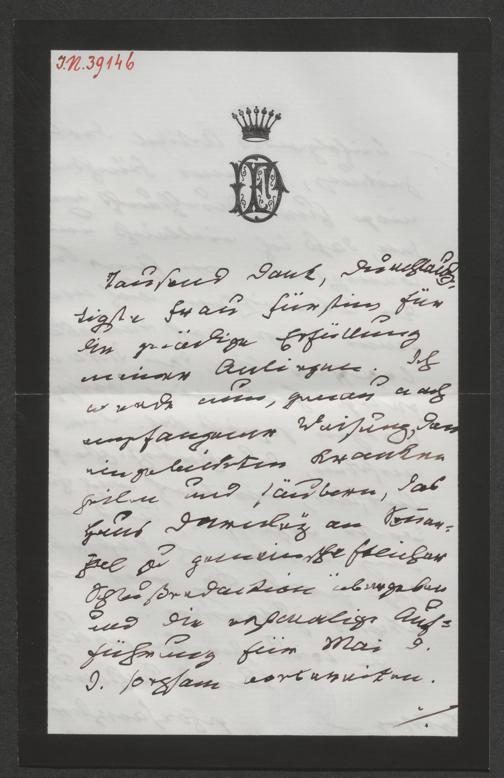 I.N. 39146
Tausend Dank, Durchlauch-
tigste Frau Fürstin, für
die gnädige Erfüllung
meiner Anliegen. Ich
werde nun, genau nach
empfangener Weisung, den
eingebildeten Kranken
feilen und säubern, das
an
zu gemeinschaftlicher
Schlußredaktion übergeben
und die erstmalige Auf=
führung für Mai d.
J. sorgsam vorbereiten.